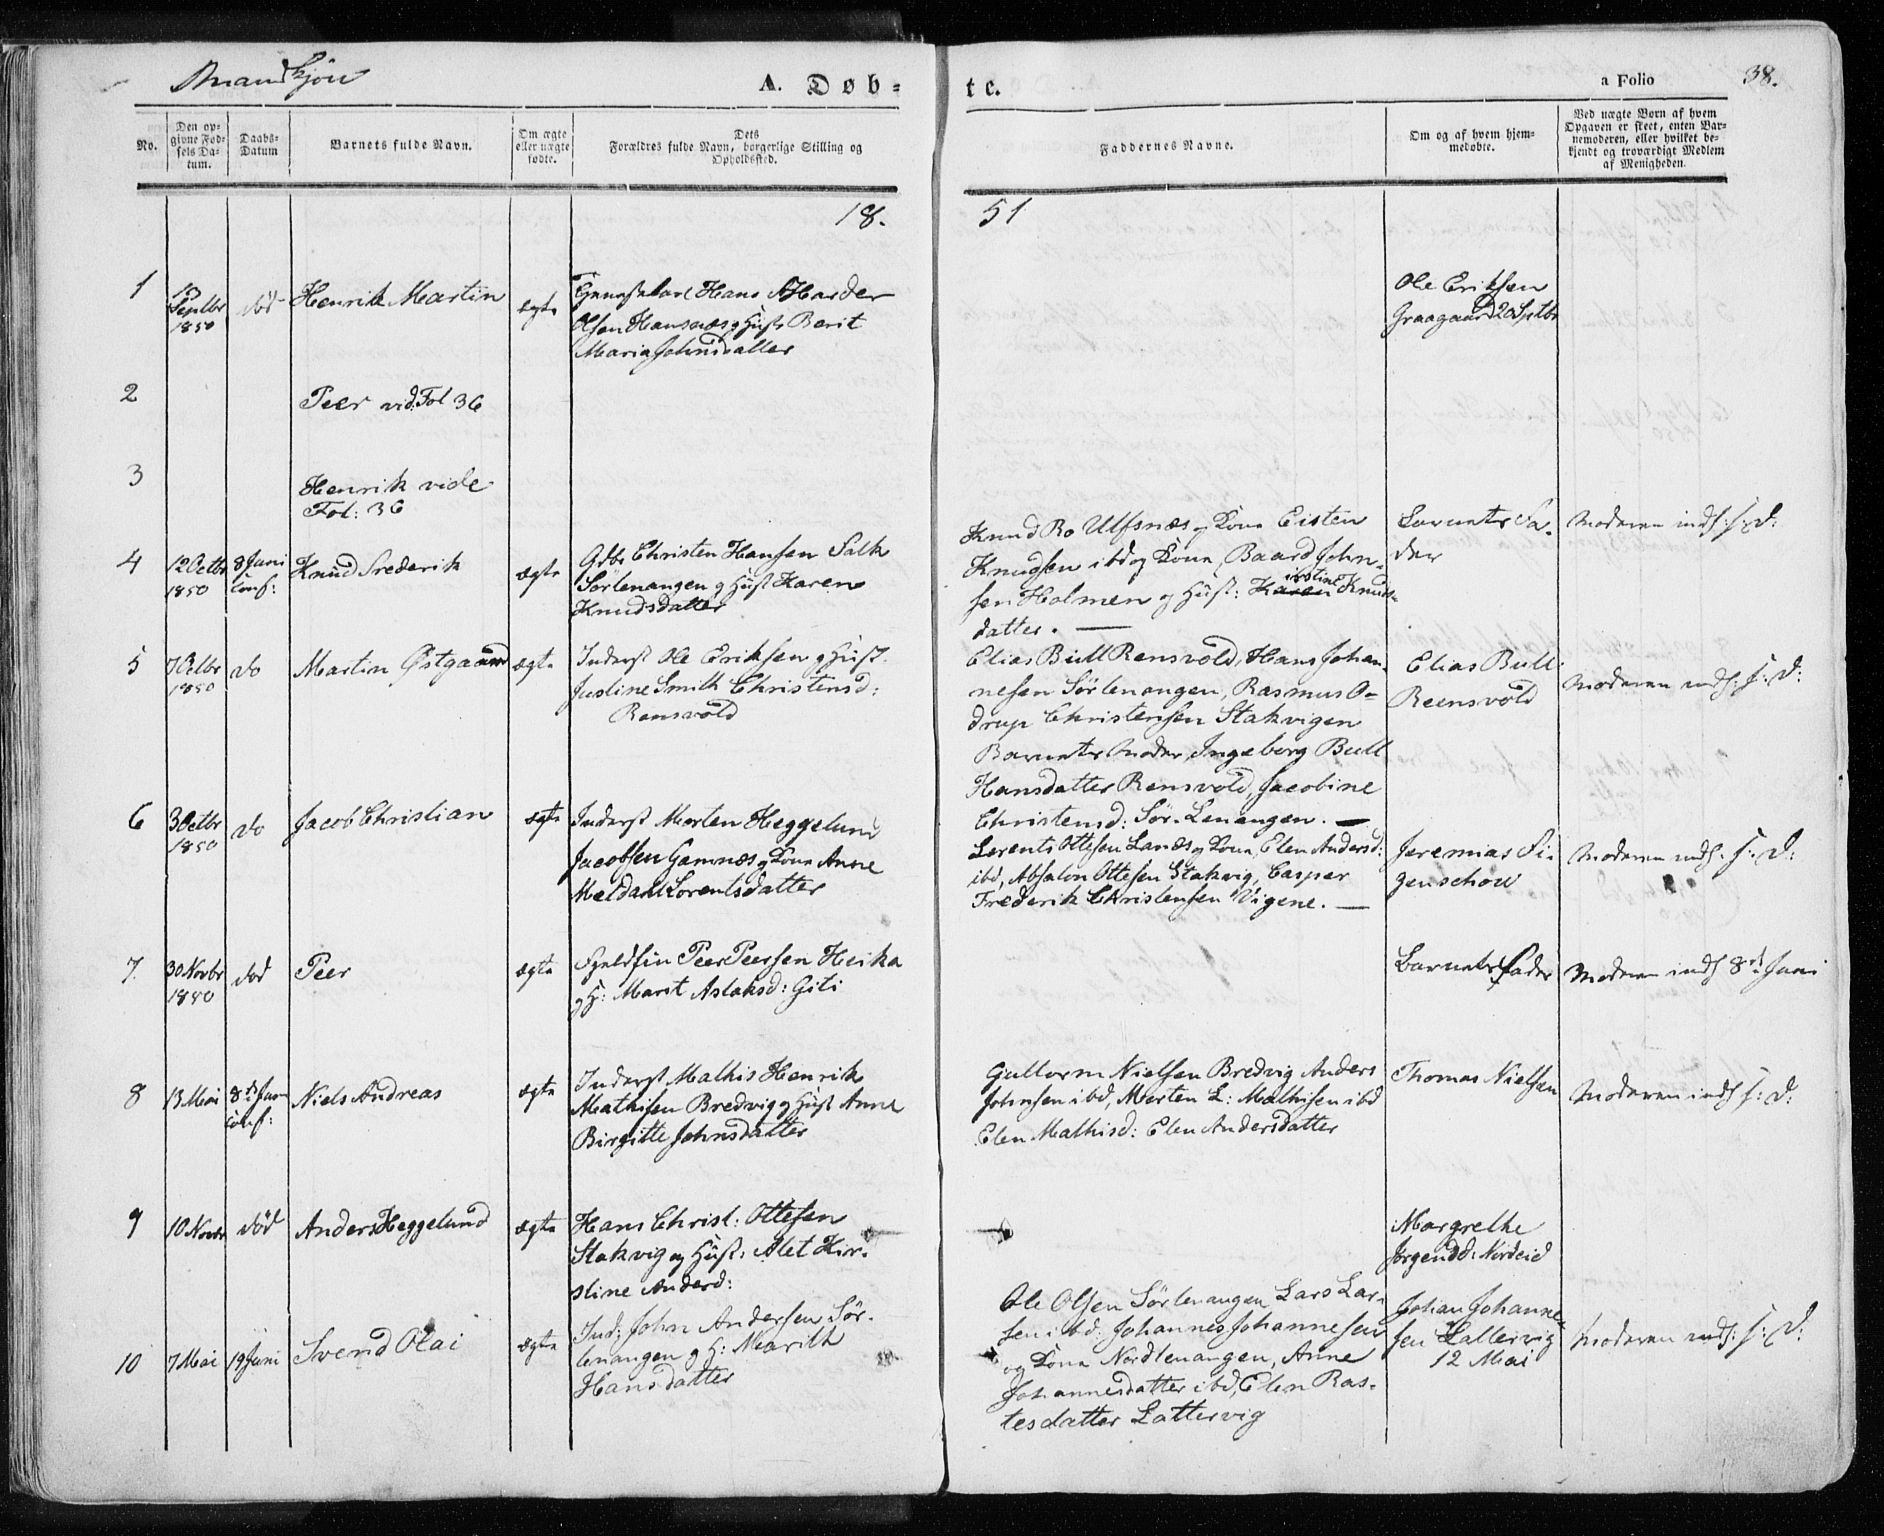 Mandkjøn
A. Døb-
te.
a Folio
38.
No.
Den op-
givne Fød-
sels Da-
tum.
Daabs-
Datum
Barnets fulde Navn.
Om ægte
eller uægte
fødte.
Dets
Forældres fulde Navn, borgerlige Stilling og
Opholdssted.
Faddernes Navne.
Om og af hvem hjem-
medøbte.
Ved uægte Børn af hvem
Opgaven er skeet, enten Bar-
nemoderen, eller hvilket be-
kjendt og troværdigt Medlem
af Menigheden.
18.
51
1
Septbr
1850
død
Henrik Martin
ægte
Hans A Harder
Olsen Hansnæs og Hust Berit
Maria Johnsdatter
Ole Eriksen
Graagaard 20 Septbr
2
Peer vid. Fol 36
3
Henrik vide
Fol: 36
4
12 Octbr
1850
8 Juni
conf:
Knud Frederik
ægte
Gdbr Christen Hansen Falk
Sörlenangen og Hust Karen
Knudsdatter
Knud Bo Ulfsnæs og Kone Eisten
Knudsen ibd og Kone Baard John-
sen Holmen og Hust: Karen irstine Knuds-
datter.
Barnets Fa-
der
Moderen indl: s: D:
5
7 Octbr
1850
do
Martin Østgaard
ægte
Inderst Ole Eriksen og Hust.
Justine Smith Christensd:
Rensvold
Elias Bull Rensvold, Hans Johan-
nesen Sörlenangen, Rasmus O-
drup Christensen Stakvigen
Barnets Moder, Ingeborg Bull
Hansdatter Rensvold, Jacobine
Christensd: Sör-Lenangen.
Elias Bull
Reensvold
Moderen indl: s: D:
6
3 Octbr
1850
do
Jacob Christian
ægte
Inderst Morten Heggelund
Jacobsen Gamnæs og Kone Anne
Meldahl Lorentsdatter
Lorents Ottesen Lanæs og Kone, Elen Andersd:
ibd, Absalon Ottesen Stakvig, Casper
Frederik Christensen Vigene.
Jeremias Fi-
genschou
Moderen indl: s: D:
7.
30 Novbr
1850
død
Peer
ægte
Fjeldfin Peer Peersen Heika
og H: Marit Aslaksd: Giti
Barnets Fader
Moderen indl 8de Juni
8
13 Mai
8de Juni
conf:
Niels Andreas
ægte
Inderst Mathis Henrik
Mathisen Bredvig og Hust Anne
Birgitte Johnsdatter
Guttorm Nielsen Bredvig Anders
Johnsen ibd, Morten L: Mathisen ibd
Elen Mathisd: Elen Andersdatter
Thomas Nielsen
Moderen indl s: D:
9
10 Novbr
død
Anders Heggelund
ægte
Hans Christ: Ottesen
Stakvig og Hust: Alet Kir-
stine Andersd:
Margrethe
Jörgensd: Nordeid
10
7 Mai
19 Juni
Svend Olai
ægte
Ind: John Andersen Sör-
lenangen og H: Marith
Hansdatter
Ole Olsen Sörlenangen Lars Lar-
sen ibd: Johannes Johannesen
og Kone Nordlenangen, Anne
Johannesdatter ibd, Elen Ras-
tesdatter Lattervig
Johan Johanne-
sen Lattervig
12 Mai
Moderen indl: s: D: